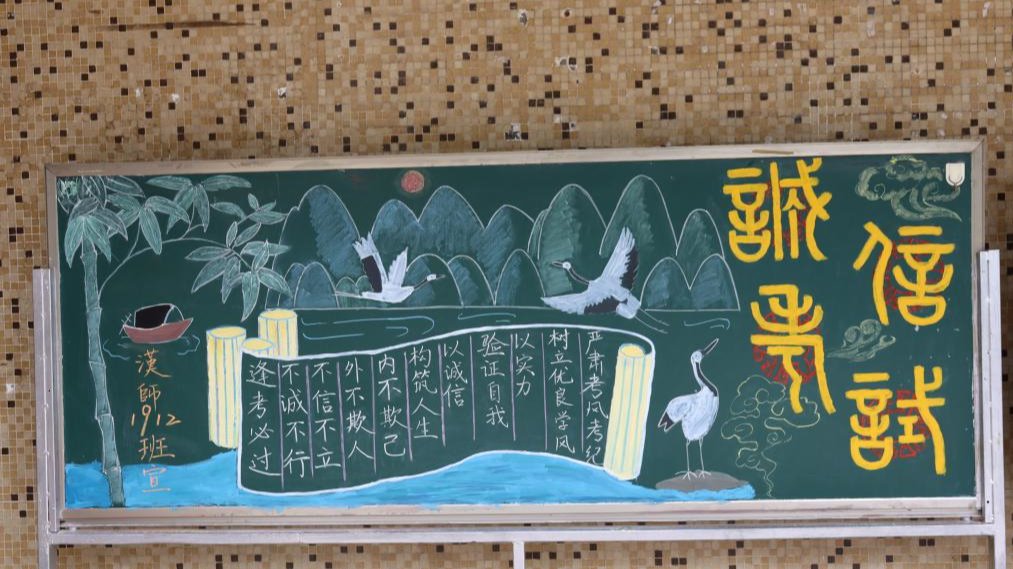 誠信
考試
严肃考风考纪
树立优良学风
以实力
验证自我
以诚信
构筑人生
内不欺己
外不欺人
不信不立
不诚不行
逢考必过
漢師1912班宣